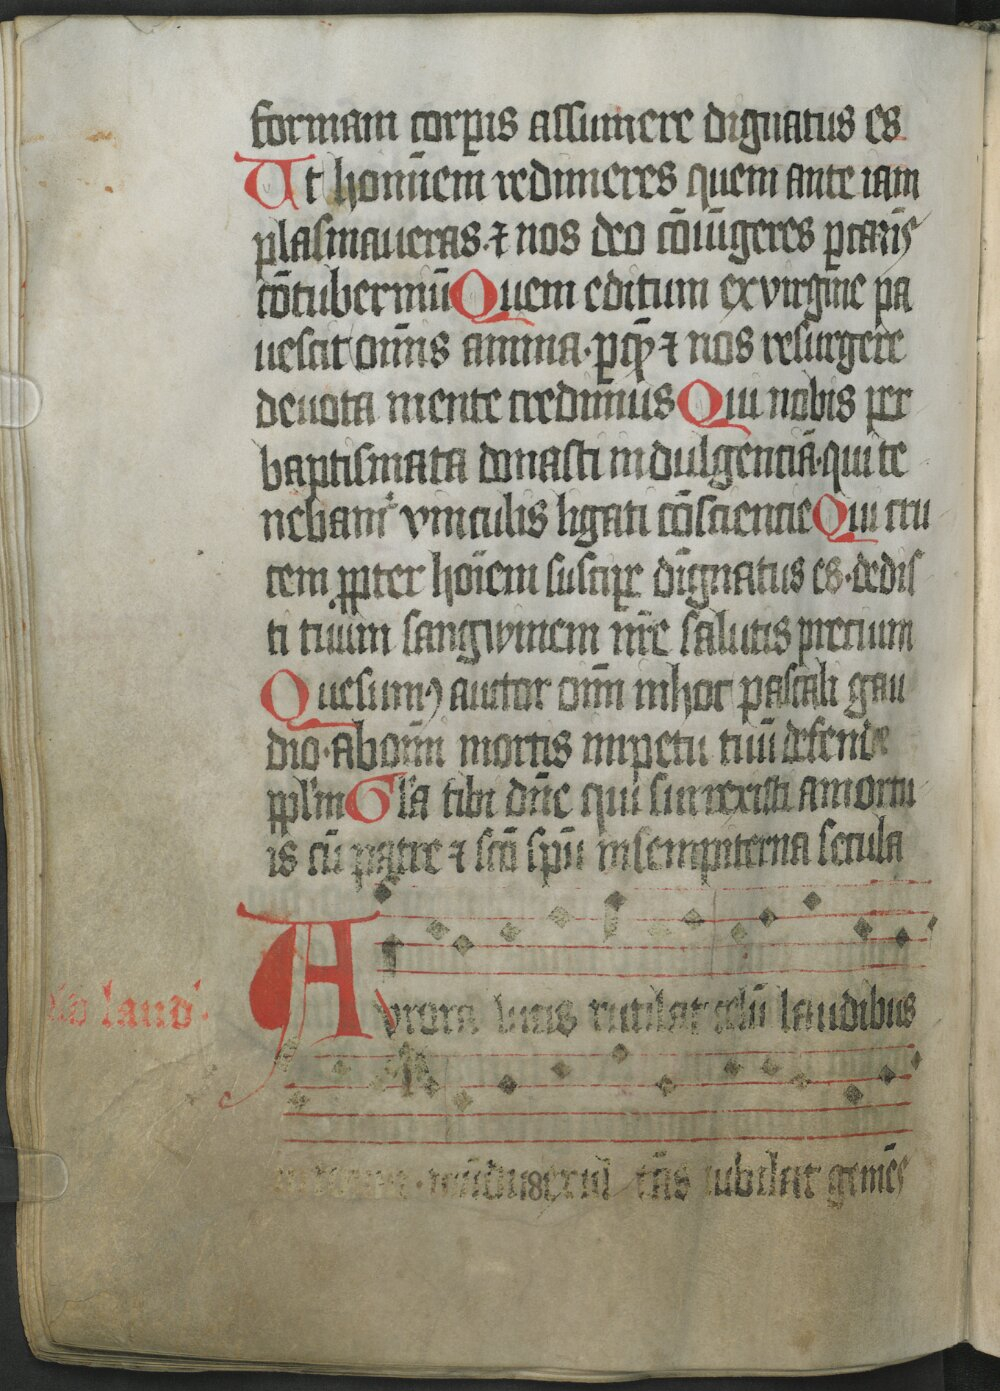 formam corꝑis assumere dignatus es
Ut hominem redimeres quem ante iam
plasmaueras · ⁊ nos deo cōiūgeres ꝑ carnis
cōtuberniū Quem editum ex virgine pa
uescit omīs anima · ꝑ quē ⁊ nos resurgere
deuota mente credimus Qui nobis per
baptismata donasti indulgenciā · qui te
nebamr vinculis ligati cōsciencie Qui cru
cem ꝓpter hoīem suscipe dignatus es · dedis
ti tuum sangwinem nr̄e salutis precium
Quesumꝰ auctor omīn in hoc pascali gau
dio · ab omī mortis impetu tuū defende
ppl'm Gl'a tibi dn̄e qui surrexisti a mortu
is cū patre ⁊ scō spū in sempiterna secula
Ad laud'.
Aurora lucis rutilat celū laudibus
mūdus exul tās iubilat gemēs